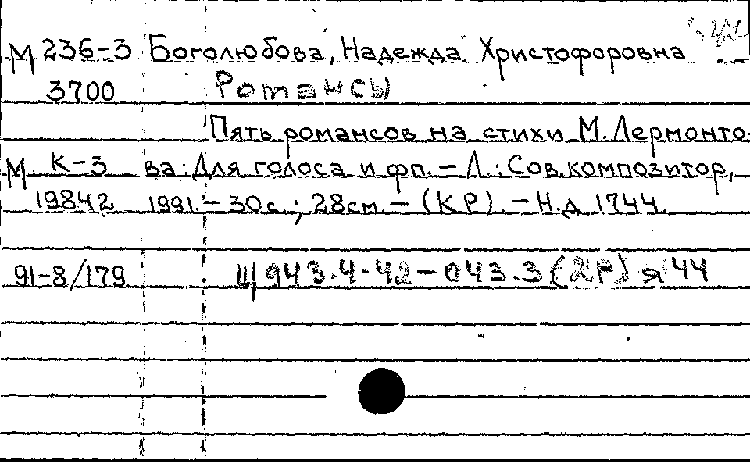 М 236-3 Боголюбова, Надежда Христофоровна
3700 Романсы
Пять романсов на стихи М. Лермонто-
М К-3 ва: Для голоса и фп. – Л.: Сов. композитор,
19842 1991. – 30 с.; 28 см. – (КР). – Н.д. 1744.
91-8/179 Щ 943.4-42-043.3(2Р) я 44